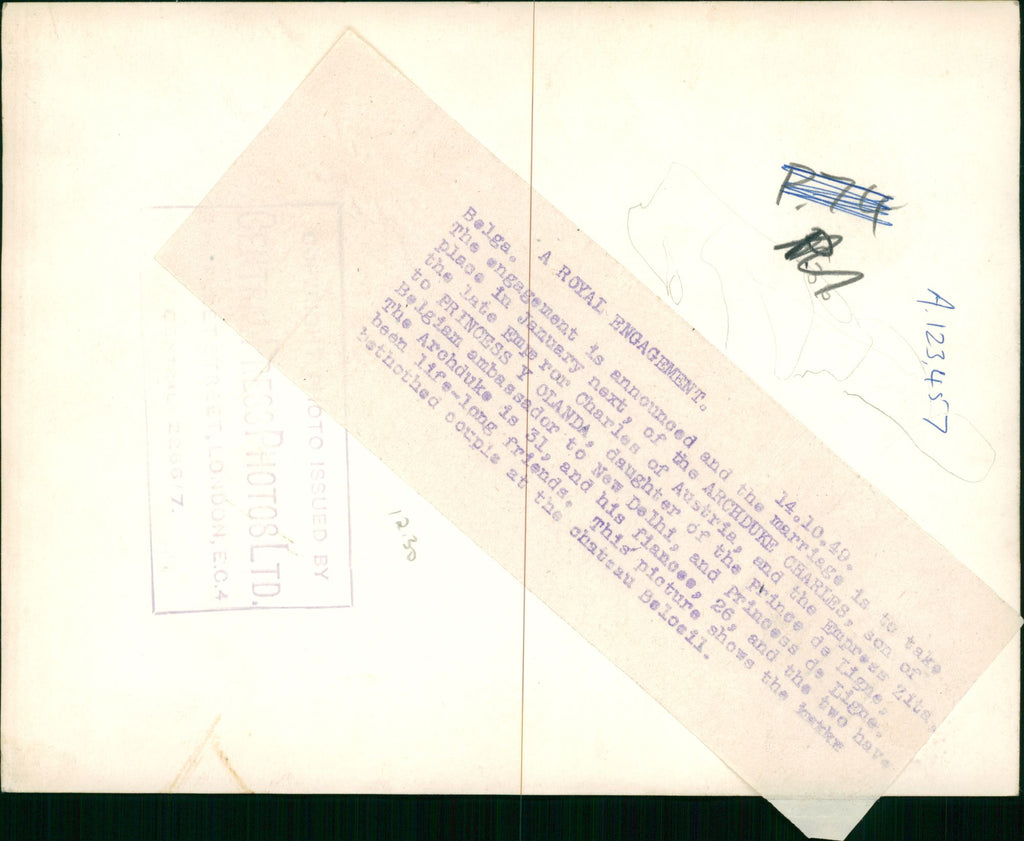 Belga. A ROYAL ENGAGEMENT. 14.10.49.
The engagement is announced and the marriage is to take
place in January next, of the ARCHDUKE CHARLES, son of
the late Emp ror Charles of Austria, and the Empress Zita,
to PRINCESS Y OLANDA, daughter of the Prince de Ligne,
Belgian ambassador to New Delhi, and Princess de Ligne.
The Archduke is 31, and his fiancee, 26, and the two have
been life-long friends. This picture shows the
bethothed couple at the chateau Beloeil.
PHOTO ISSUED BY
PRESS PHOTOS LTD.
STREET, LONDON, E.C.4
12.30
P.74
A.123,457